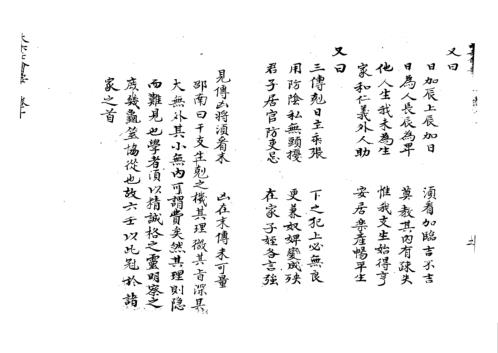 又曰
日加辰上辰加日 須看加臨言不言
日為人長辰為卑 莫教其內有疎失
他人生我未為生 惟我支生始得亨
家和仁義外人助 安居樂產暢平生
又曰
三傳剋日主乖張 下之犯上必無良
用防陰私無頭擾 更慕奴婢變成殃
君子居官防更忌 在家子姪各言強
見傳凶將須看末 凶在末傳未可量
邵南曰干支生剋之機其理微其旨深其
大無外其小無內可謂費矣然其理則隱
而難見也學者須以精誠格之靈明察之
庶幾龜筮協從也故六壬以此冠於諸
家之首